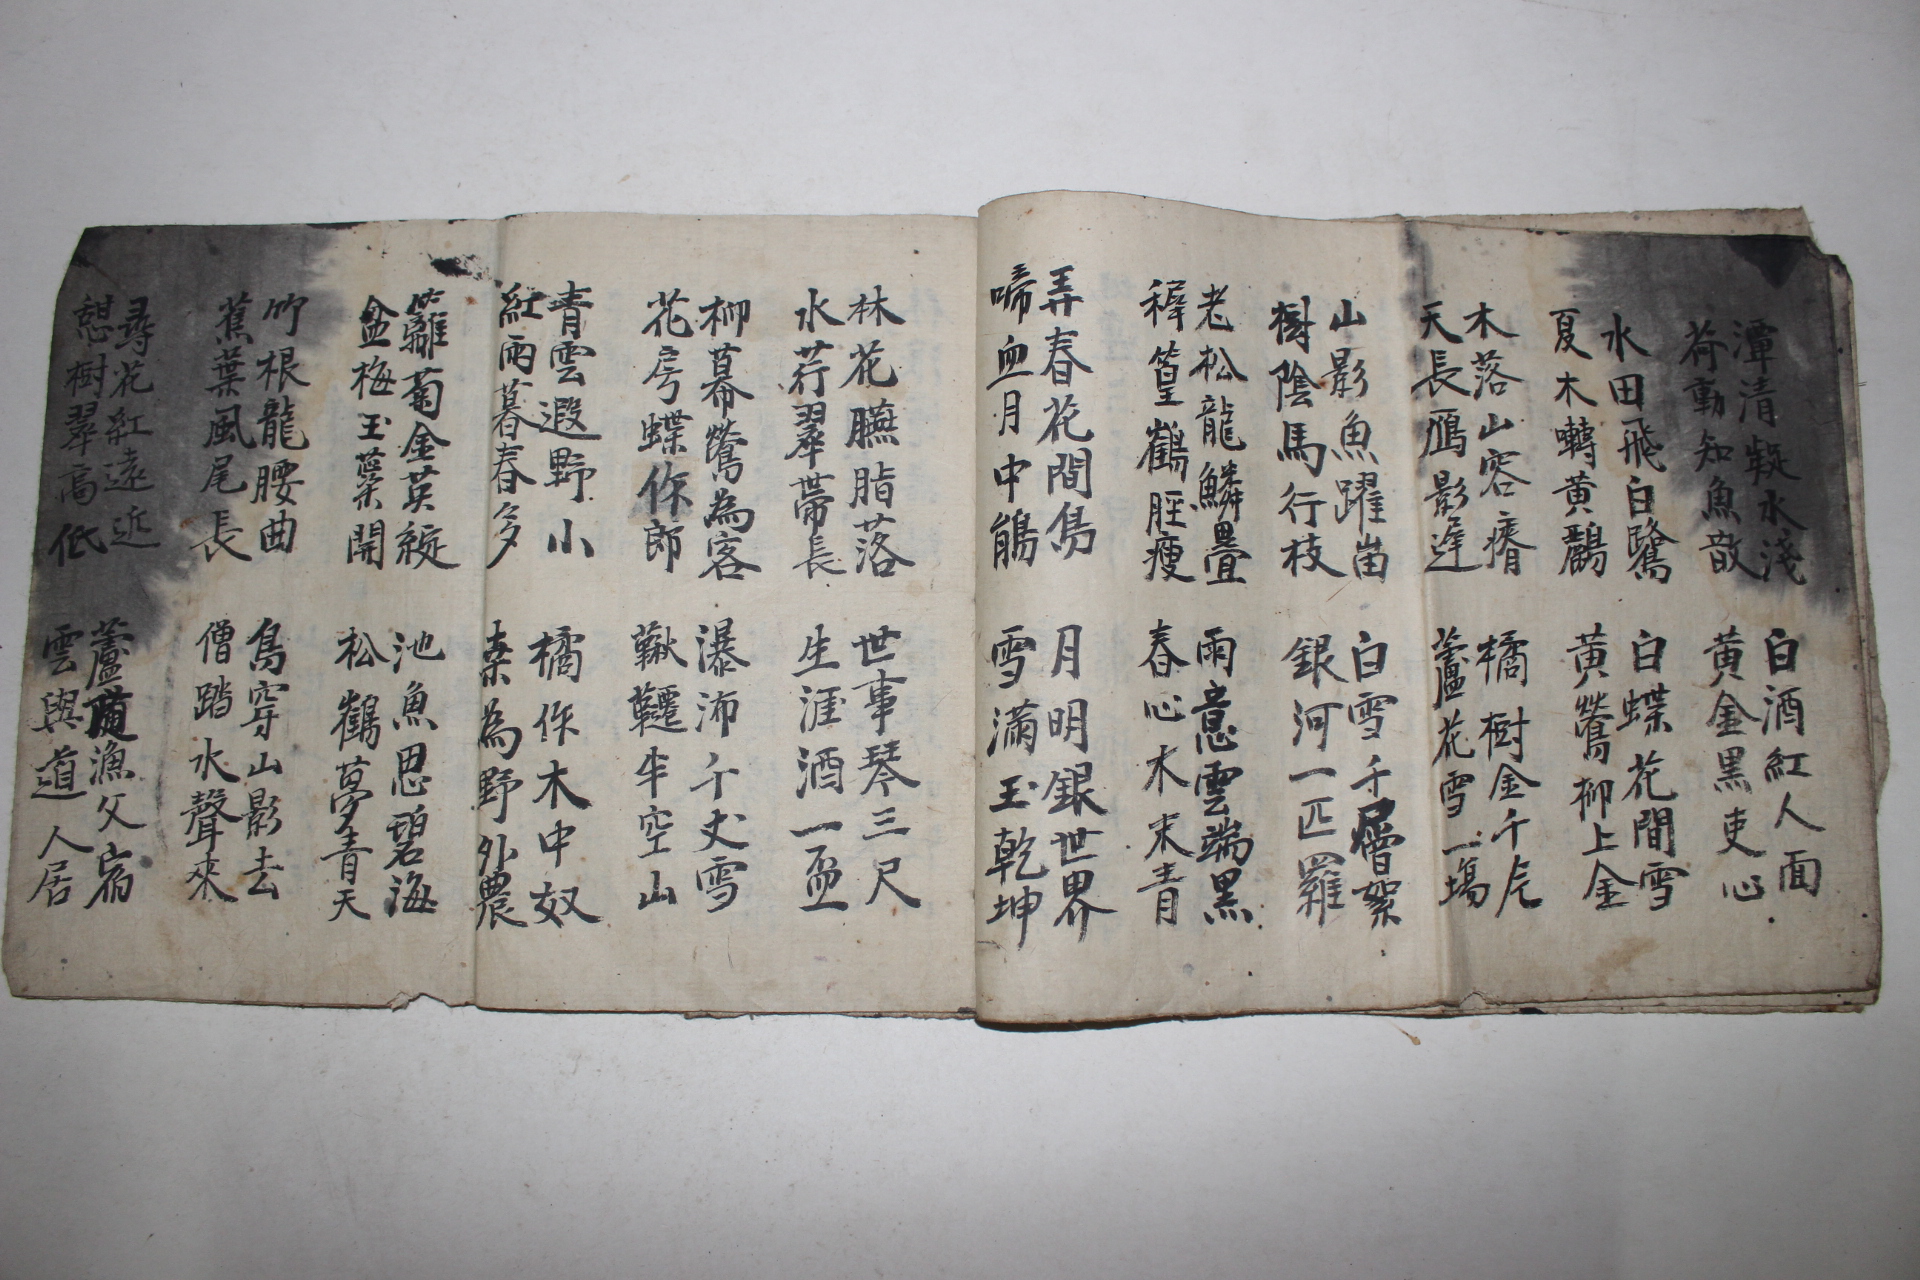 潭清凝水淺
荷動知魚散
白酒紅人面
黄金黑吏心
水田飛白鷺
夏木囀黄鸝
白蝶花間雪
黄鶯柳上金
木落山容瘠
天長鴈影遲
橘樹金千
蘆花雪一場
山影魚躍
樹陰馬行枝
白雪千層絮
銀河一匹羅
老松龍鱗疊
稺篁鶴脛瘦
雨意雲端黑
春心木末青
弄春花間鳥
啼血月中鵑
月明銀世界
雪滿玉乾坤
林花臙脂落
水荇翠帶長
世事琴三尺
生涯酒一盃
柳幕鶯為客
花房蝶作郎
瀑沛千丈雪
鞦韆半空山
青雲遐野小
紅雨暮春多
橘作木中奴
桑為野外農
籬菊金英綻
盆梅玉葉開
池魚思碧海
松鶴夢青天
竹根龍腰曲
蕉葉風尾長
鳥穿山影去
僧踏水聲來
尋花紅遠近
憇樹翠高低
蘆漁父宿
雲與道人居